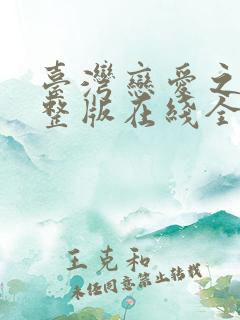 臺灣戀愛之
整版在綫全
王克和
未经同意禁止转载